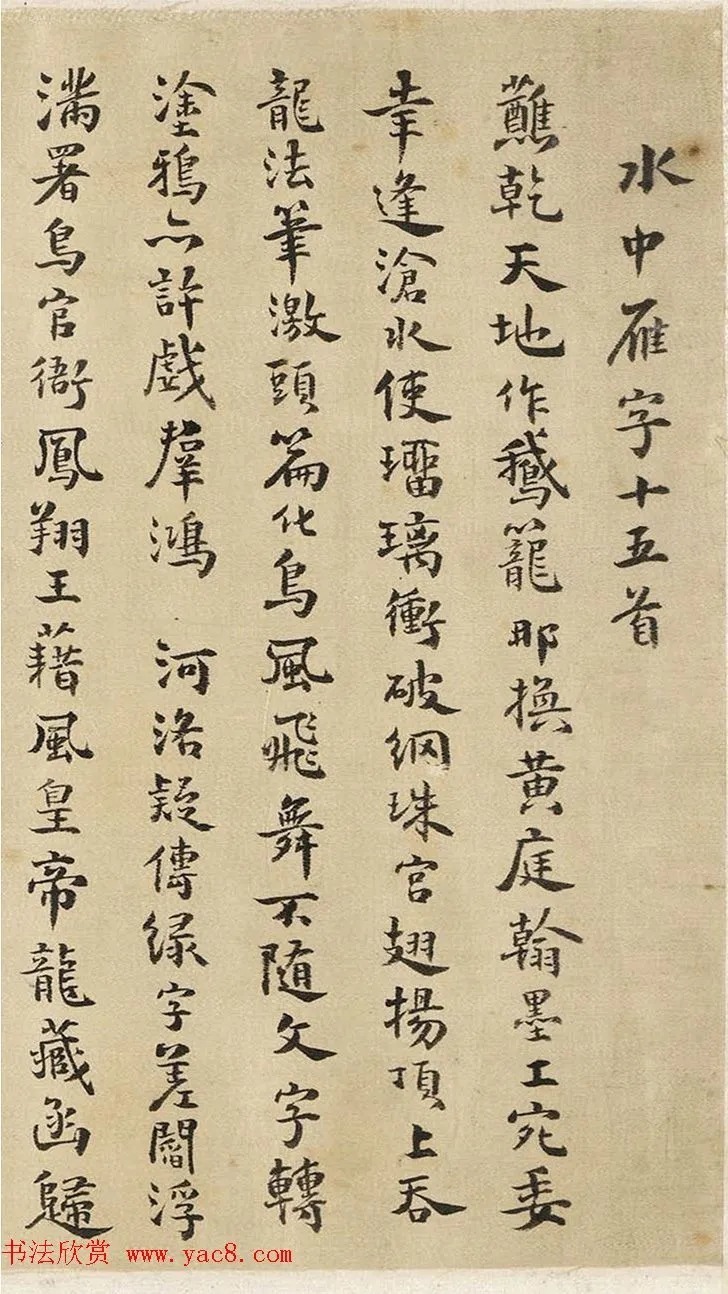 水中雁字十五首
蘸乾天地作鵞籠那換黄庭翰墨工宛委
幸逢滄水使瑠璃衝破網珠宮翅揚頂上吞
龍法筆激頭篇化鳥風飛舞不随文字轉
塗鴉亦許戲羣鴻 河洛疑傳緑字差閻浮
滿署鳥官衙鳳翔王藉風皇帝龍藏函歸
书法欣赏 www.yac8.com